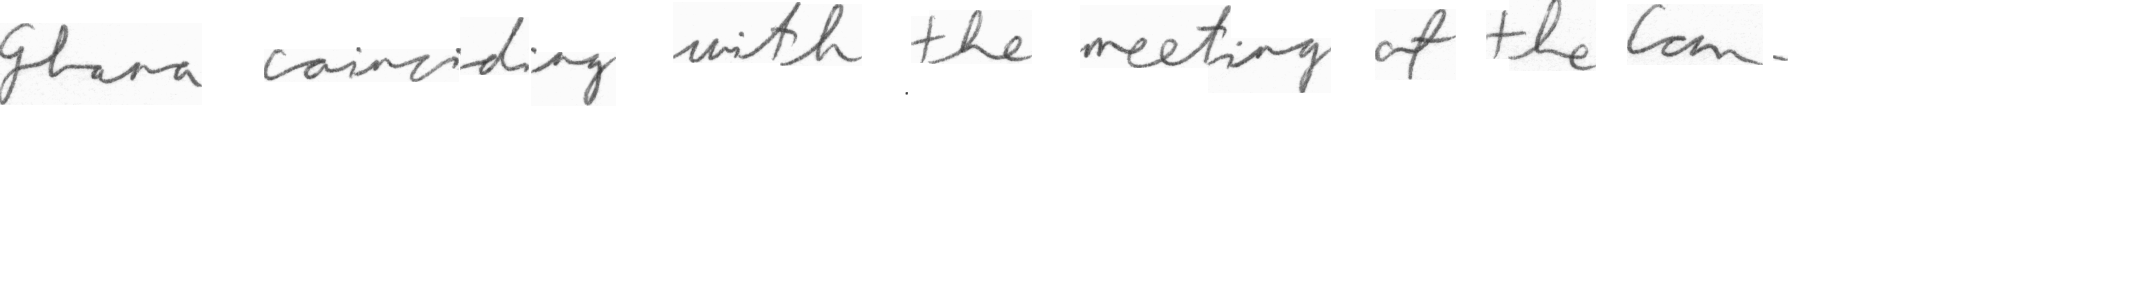 Ghana coinciding with the meeting of the Com-